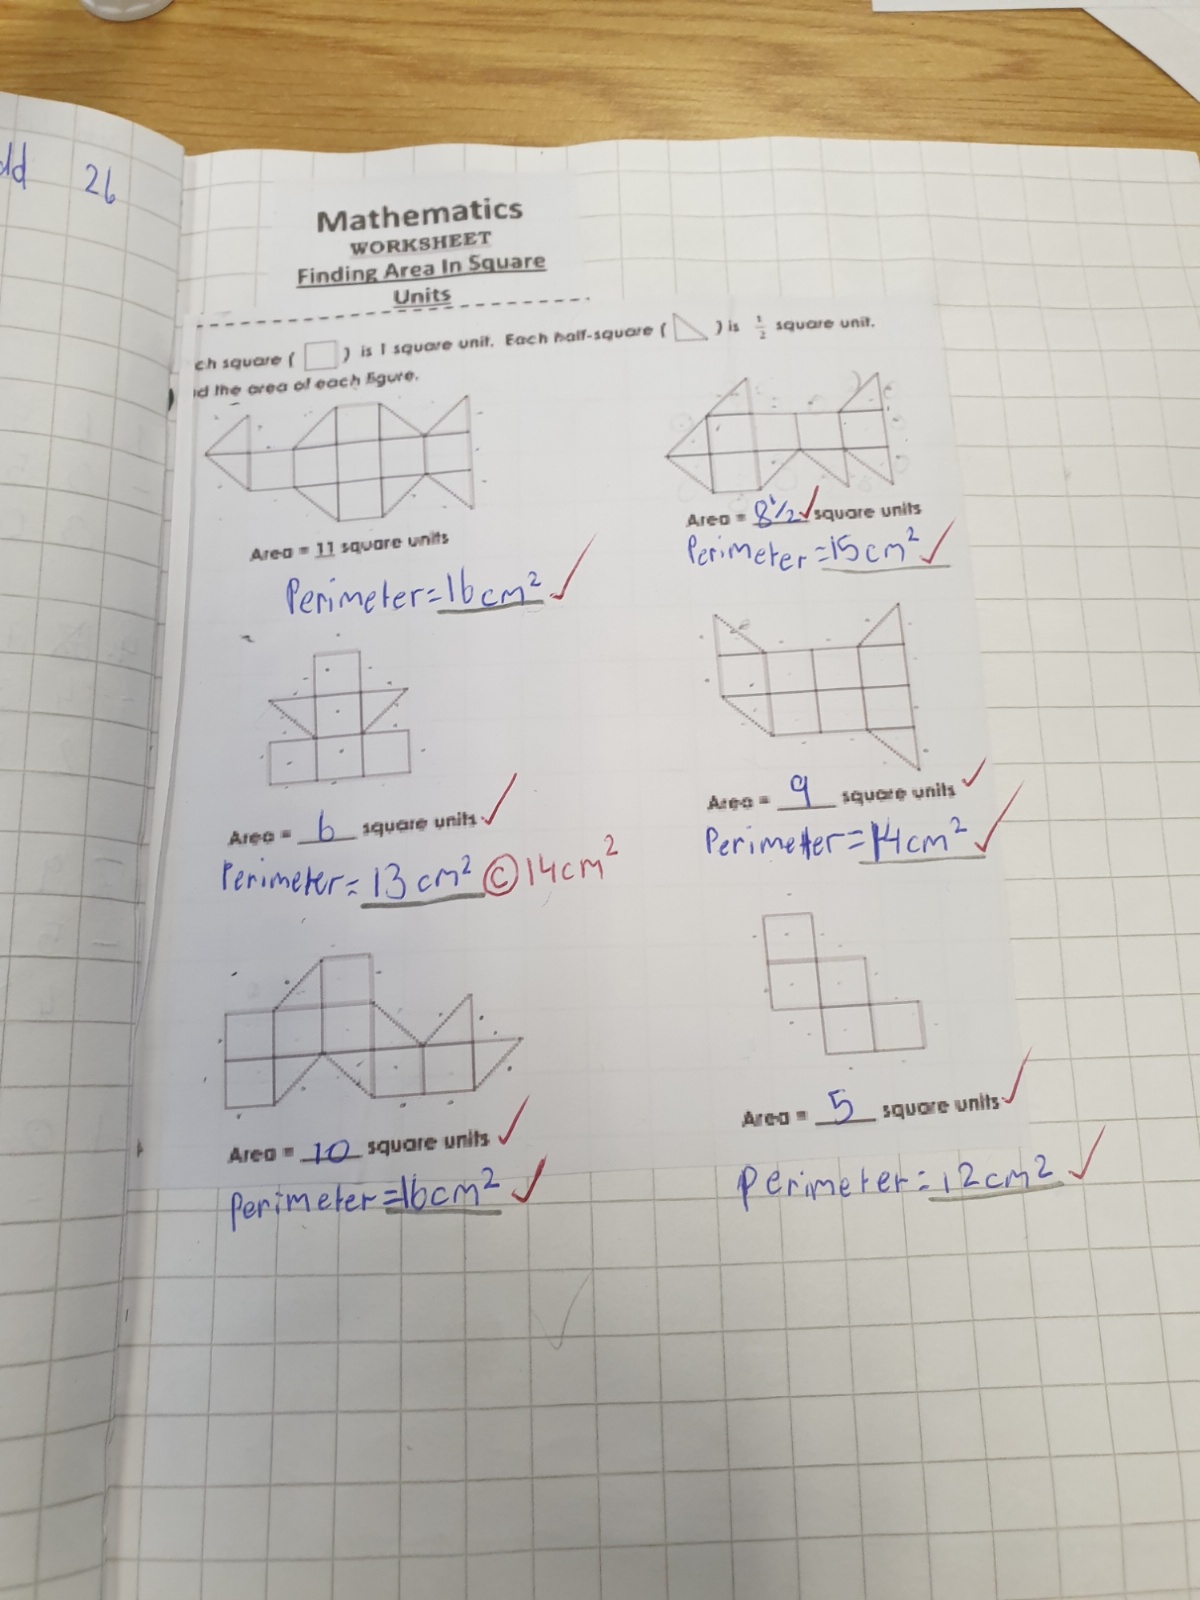 dd 26
Mathematics
WORKSHEET
Finding Area In Square
Units
ch square ( ) is 1 square unit. Each half-square ( ) is 1/2 square unit.
d the area of each figure.
Area = 11 square units
Perimeter=16cm²
Area = 8 1/2 square units
Perimeter=15cm²
Area = 6 square units
Perimeter= 13 cm² © 14cm²
Area = 9 square units
Perimeter=14cm²
Area = 10 square units
Perimeter=16cm²
Area = 5 square units
Perimeter=12cm²